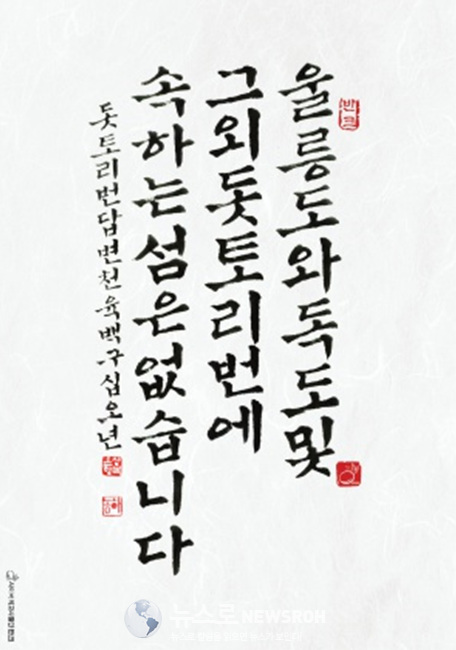 울릉도와독도및
그외돗토리번에
속하는섬은없습니다
돗토리번답변천육백구십오년
뉴스로 NEWSROH